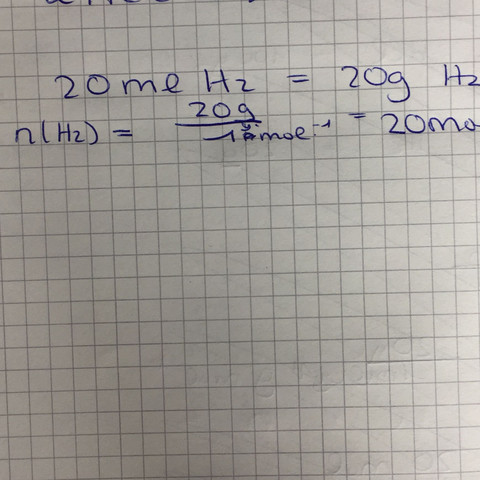 20ml H₂ = 20g H₂
n(H₂) = 20g / 1 mol⁻¹ = 20mo